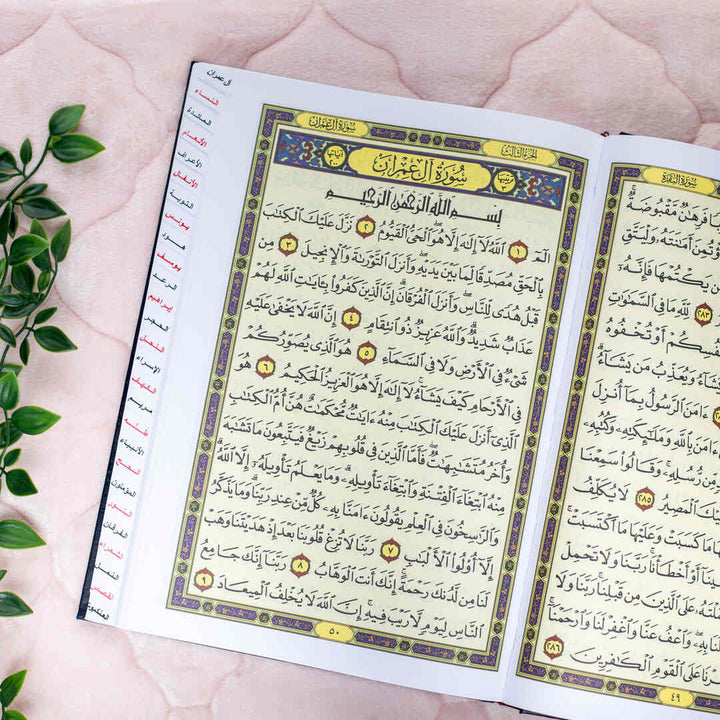 سُورَةُ البَقَرَةِ
مَّقْبُوضَةٌ
أَمَٰنَتَهُۥ وَلْيَتَّقِ
يَكْتُمْهَا فَإِنَّهُۥٓ
٢٨٣ لِّلَّهِ مَا فِى ٱلسَّمَٰوَٰتِ
أَوْ تُخْفُوهُ
وَيُعَذِّبُ مَن يَشَآءُ
ءَامَنَ ٱلرَّسُولُ بِمَآ أُنزِلَ
ءَامَنَ بِٱللَّهِ وَمَلَٰٓئِكَتِهِۦ وَكُتُبِهِۦ
مِّن رُّسُلِهِۦ وَقَالُوا۟ سَمِعْنَا
ٱلْمَصِيرُ ٢٨٥ لَا يُكَلِّفُ
مَا كَسَبَتْ وَعَلَيْهَا مَا ٱكْتَسَبَتْ
أَوْ أَخْطَأْنَا رَبَّنَا وَلَا تَحْمِلْ
عَلَى ٱلَّذِينَ مِن قَبْلِنَا رَبَّنَا وَلَا
لَنَا بِهِۦ وَٱعْفُ عَنَّا وَٱغْفِرْ لَنَا وَٱرْحَمْنَآ
عَلَى ٱلْقَوْمِ ٱلْكَٰفِرِينَ ٢٨٦
٤٩
الجزء الثالث
سُورَةُ آلِ عِمْرَانَ
سُورَةُ آلِ عِمْرَانَ
بِسْمِ ٱللَّهِ ٱلرَّحْمَٰنِ ٱلرَّحِيمِ
الٓمٓ ١ ٱللَّهُ لَآ إِلَٰهَ إِلَّا هُوَ ٱلْحَىُّ ٱلْقَيُّومُ ٢ نَزَّلَ عَلَيْكَ ٱلْكِتَٰبَ
بِٱلْحَقِّ مُصَدِّقًا لِّمَا بَيْنَ يَدَيْهِ وَأَنزَلَ ٱلتَّوْرَىٰةَ وَٱلْإِنجِيلَ ٣ مِن
قَبْلُ هُدًى لِّلنَّاسِ وَأَنزَلَ ٱلْفُرْقَانَ إِنَّ ٱلَّذِينَ كَفَرُوا۟ بِـَٔايَٰتِ ٱللَّهِ لَهُمْ
عَذَابٌ شَدِيدٌ وَٱللَّهُ عَزِيزٌ ذُو ٱنتِقَامٍ ٤ إِنَّ ٱللَّهَ لَا يَخْفَىٰ عَلَيْهِ
شَىْءٌ فِى ٱلْأَرْضِ وَلَا فِى ٱلسَّمَآءِ ٥ هُوَ ٱلَّذِى يُصَوِّرُكُمْ
فِى ٱلْأَرْحَامِ كَيْفَ يَشَآءُ لَآ إِلَٰهَ إِلَّا هُوَ ٱلْعَزِيزُ ٱلْحَكِيمُ ٦ هُوَ
ٱلَّذِىٓ أَنزَلَ عَلَيْكَ ٱلْكِتَٰبَ مِنْهُ ءَايَٰتٌ مُّحْكَمَٰتٌ هُنَّ أُمُّ ٱلْكِتَٰبِ
وَأُخَرُ مُتَشَٰبِهَٰتٌ فَأَمَّا ٱلَّذِينَ فِى قُلُوبِهِمْ زَيْغٌ فَيَتَّبِعُونَ مَا تَشَٰبَهَ
مِنْهُ ٱبْتِغَآءَ ٱلْفِتْنَةِ وَٱبْتِغَآءَ تَأْوِيلِهِۦ وَمَا يَعْلَمُ تَأْوِيلَهُۥٓ إِلَّا ٱللَّهُ
وَٱلرَّٰسِخُونَ فِى ٱلْعِلْمِ يَقُولُونَ ءَامَنَّا بِهِۦ كُلٌّ مِّنْ عِندِ رَبِّنَا وَمَا يَذَّكَّرُ
إِلَّآ أُو۟لُوا۟ ٱلْأَلْبَٰبِ ٧ رَبَّنَا لَا تُزِغْ قُلُوبَنَا بَعْدَ إِذْ هَدَيْتَنَا وَهَبْ
لَنَا مِن لَّدُنكَ رَحْمَةً إِنَّكَ أَنتَ ٱلْوَهَّابُ ٨ رَبَّنَآ إِنَّكَ جَامِعُ
ٱلنَّاسِ لِيَوْمٍ لَّا رَيْبَ فِيهِ إِنَّ ٱللَّهَ لَا يُخْلِفُ ٱلْمِيعَادَ ٩
٥٠
آل عمران
النساء
المائدة
الأنعام
الأعراف
الأنفال
التوبة
يونس
هود
يوسف
الرعد
إبراهيم
الحجر
النحل
الإسراء
الكهف
مريم
طه
الأنبياء
الحج
المؤمنون
النور
الفرقان
الشعراء
النمل
القصص
العنكبوت